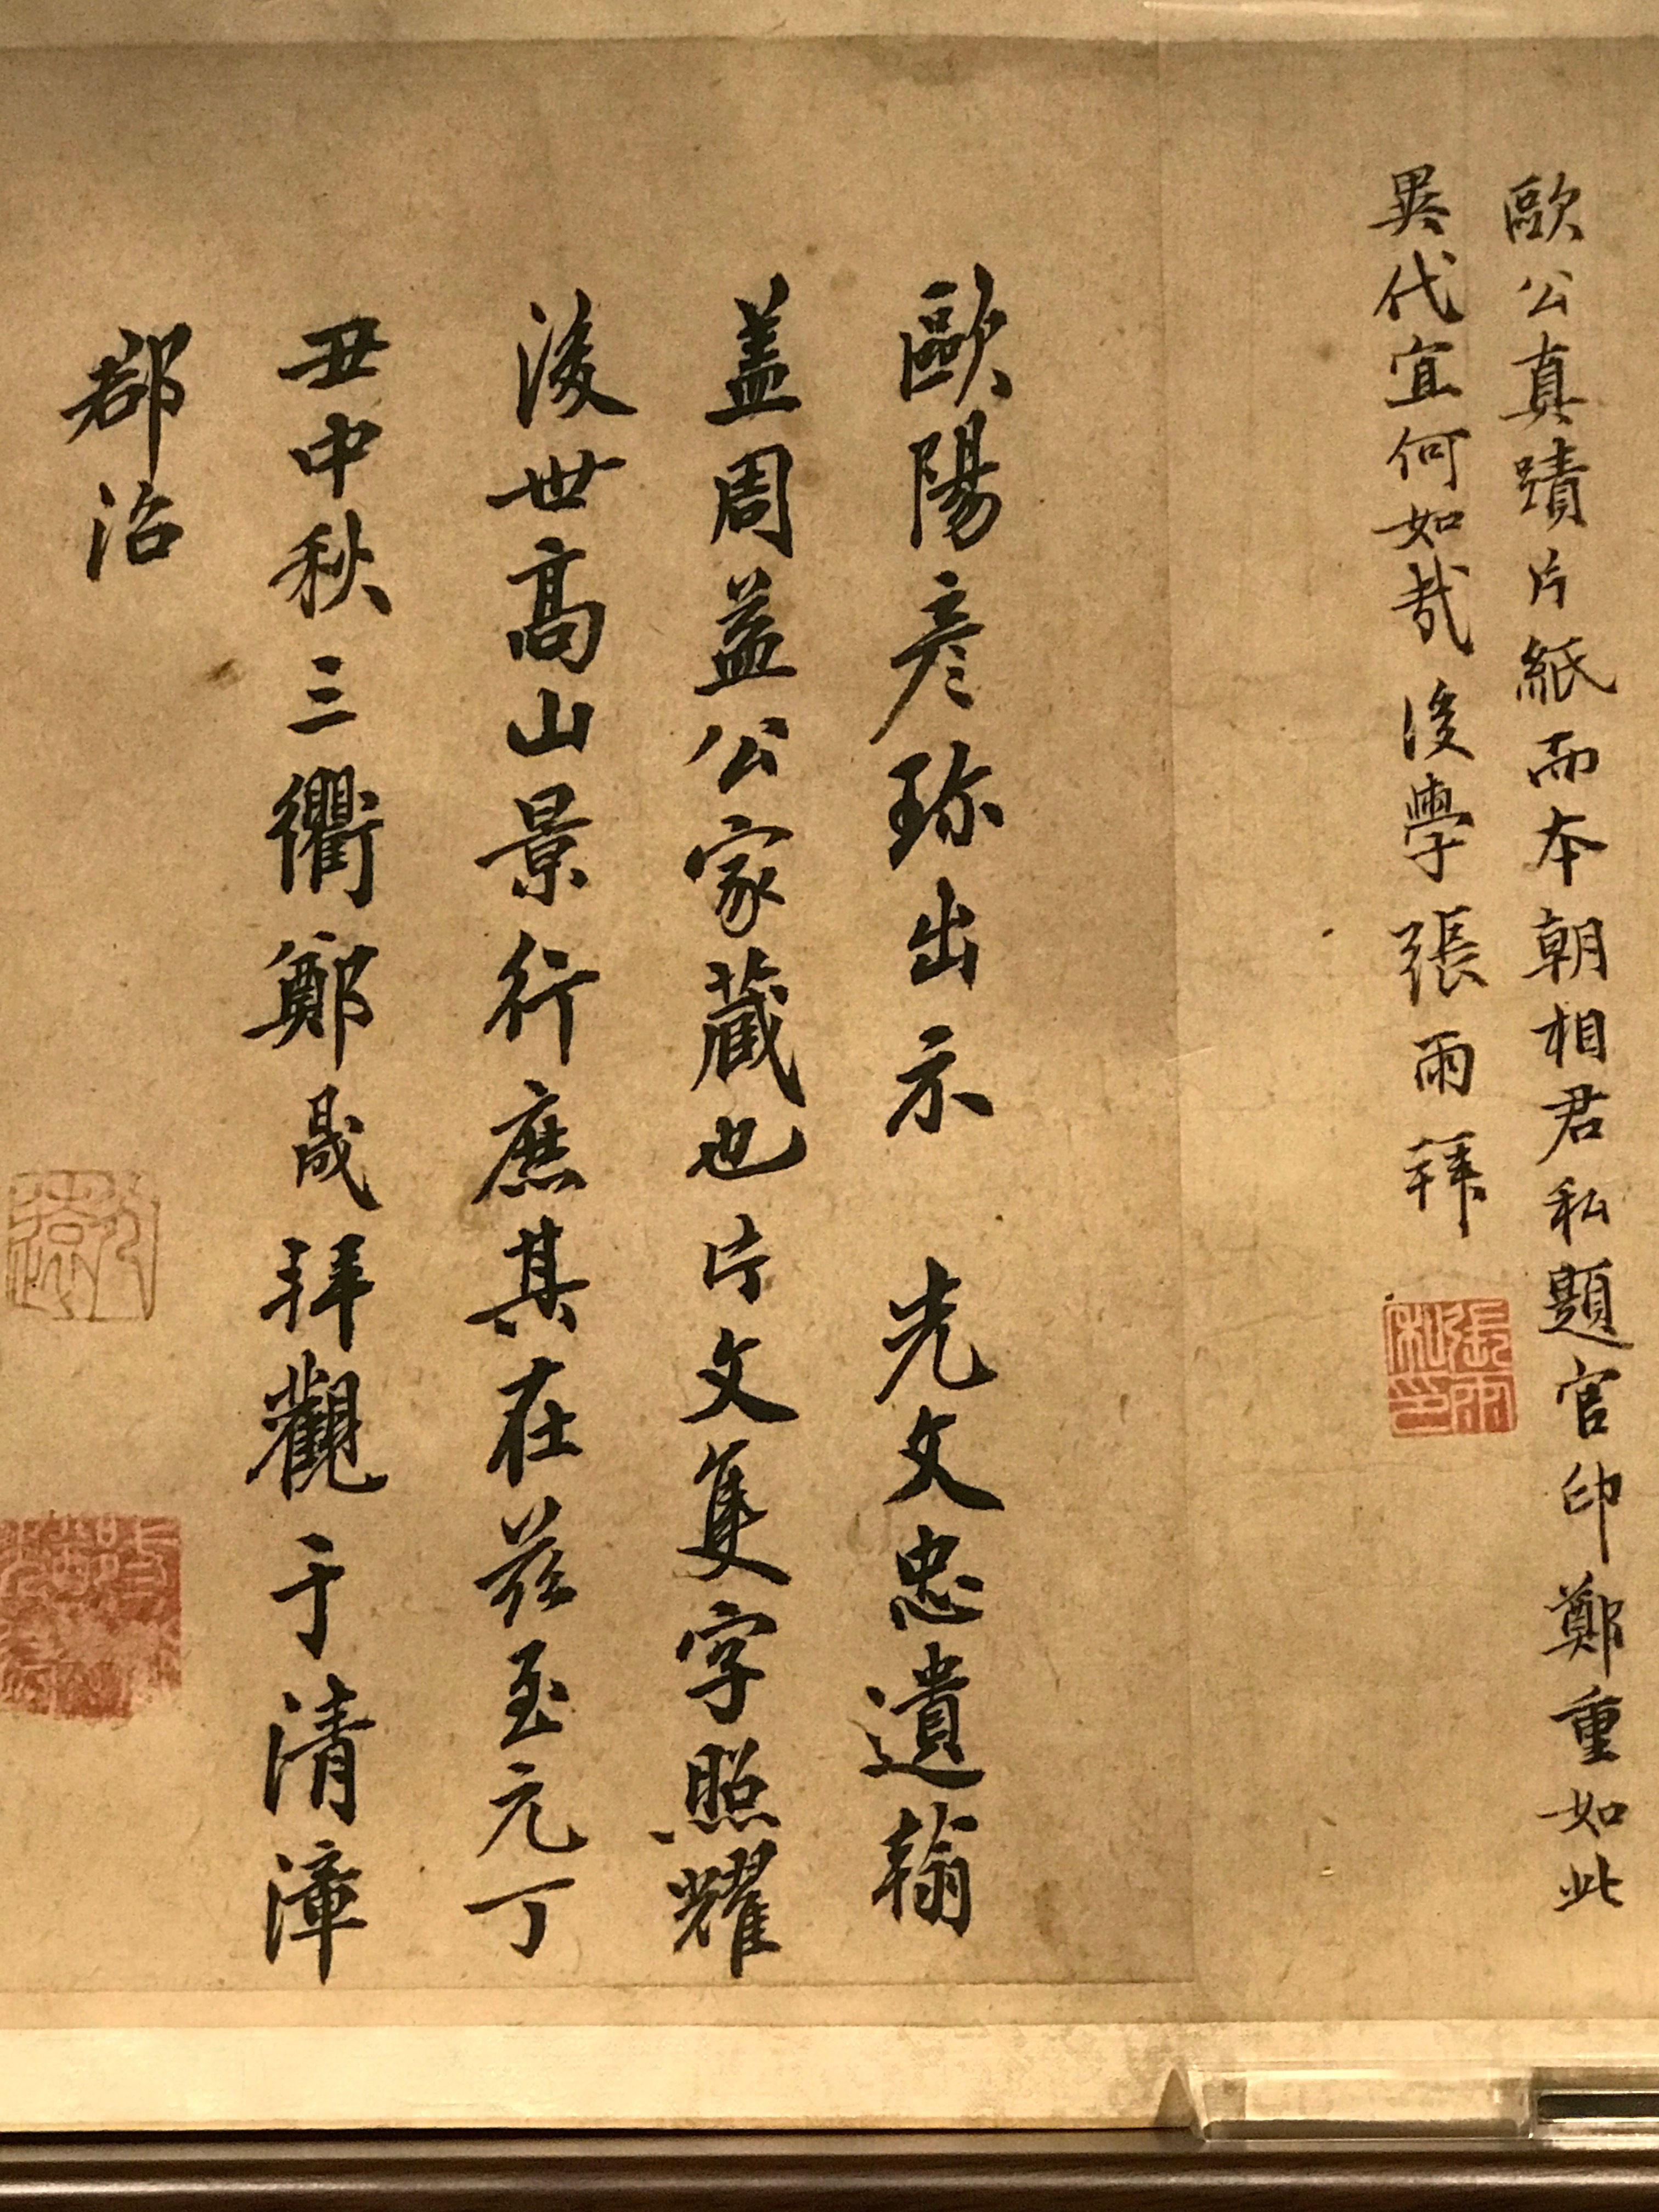 歐公真蹟片紙而本朝相君私題官印鄭重如此
異代宜何如哉後學張雨拜
張雨私印
歐陽彦珎出示 先文忠遺翰
盖周益公家藏也片文隻字照耀
後世高山景行庶其在兹至元丁
丑中秋三衢鄭晟拜觀于清漳
郡治